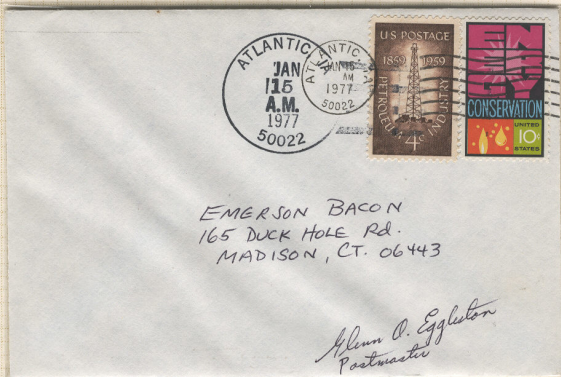 ATLANTIC
JAN
15
A.M.
1977
50022
ATLANTIC
JAN 15
AM
1977
50022
U.S. POSTAGE
1859 1959
PETROLEUM INDUSTRY
4¢
ENERGY
CONSERVATION
UNITED
10c
STATES
EMERSON BACON
165 DUCK HOLE Rd.
MADISON, CT. 06443
Glenn O. Eggleston
Postmaster